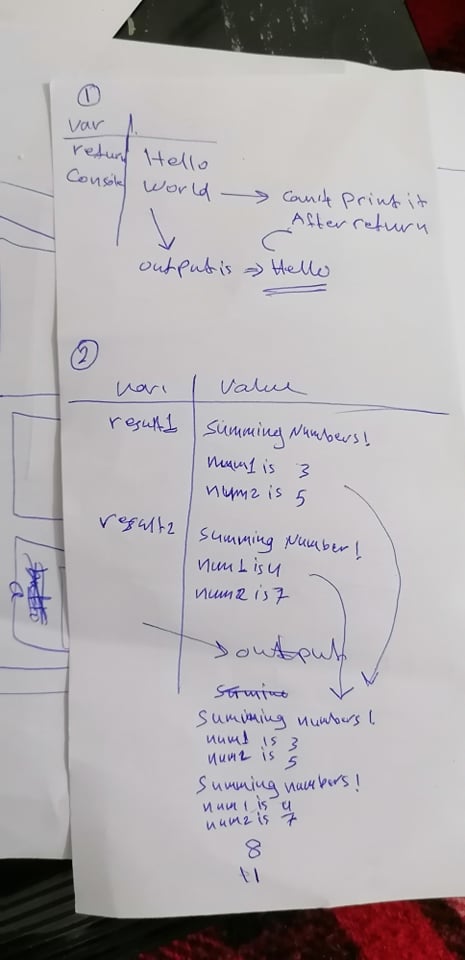 1
var
return Hello
Console World → can't print it
After return
output is ⇒ Hello
2
var. Value
result1 Summing Numbers!
num1 is 3
num2 is 5
result2 Summing Number!
num1 is 4
num2 is 7
output
Summing numbers!
num1 is 3
num2 is 5
Summing numbers!
num1 is 4
num2 is 7
8
11